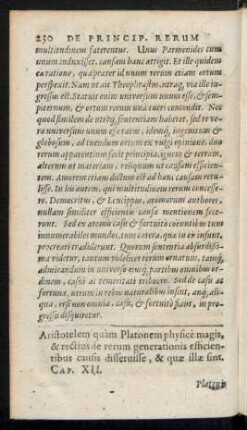 250 DE PRINCIP. RERUM
multitudinem faterentur. Unus Parmenides cum
unum induxisset, causam hanc attigit. Et ille quidem
ea ratione, qua præter id unum rerum etiam ortum
perspexit. Nam ut ait Theophrastus, utraq, via ille in-
gressus est. Statuit enim universum unum esse, & sempi-
ternum, & ortum rerum una tueri contendit. Nec
quod similem de utroq, sententiam haberet, sed re ve-
ra universum unum esse ratus, idemq, ingenitum &
globosum, ad tuendum ortum ex vulgi opinione, duo
rerum apparentium fecit principia, ignem & terram,
alterum ut materiam, reliquum ut causam efficien-
tem. Amorem etiam dictum est ad hanc causam retu-
lisse. In his autem, qui multitudinem rerum concesse-
re, Democritus, & Leucippus, atomorum authores,
nullam similiter efficientis causæ mentionem fece-
runt. Sed ex atomis casu & fortuito coeuntibus tum
innumerabiles mundos, tum cetera, quæ in eis insunt,
procreari tradiderunt. Quorum sententia absurdissi-
ma videtur, tantum videlicet rerum ornatum, tamq,
admirandum in universo ejusq, partibus omnibus or-
dinem, casui ac temeritati tribuere. Sed de casu ac
fortuna, utrum in rebus naturalibus insint,
qua, et si non omnia, casu, & fortuito fiant, in pro-
gressu disquiretur.
Aristotelem quàm Platonem physicè magis,
& rectius de rerum generationis efficien-
tibus causis disseruisse, & quæ illæ sint.
CAP. XII.
Platonis